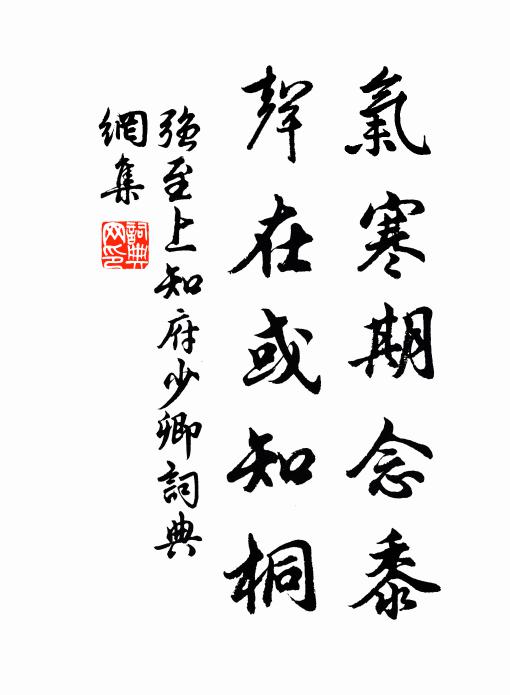 氣寒期念黍
聲在或知桐
強至上知府少卿詞典
網集
詞典網印